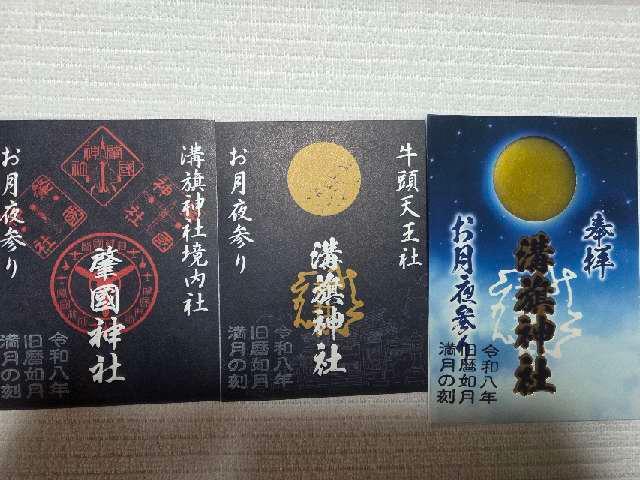 溝旗神社境内社
肇國神社
お月夜参り
令和八年
旧暦如月
満月の刻
牛頭天王社
溝旗神社
お月夜参り
令和八年
旧暦如月
満月の刻
奉拝
溝旗神社
お月夜参り
令和八年
旧暦如月
満月の刻